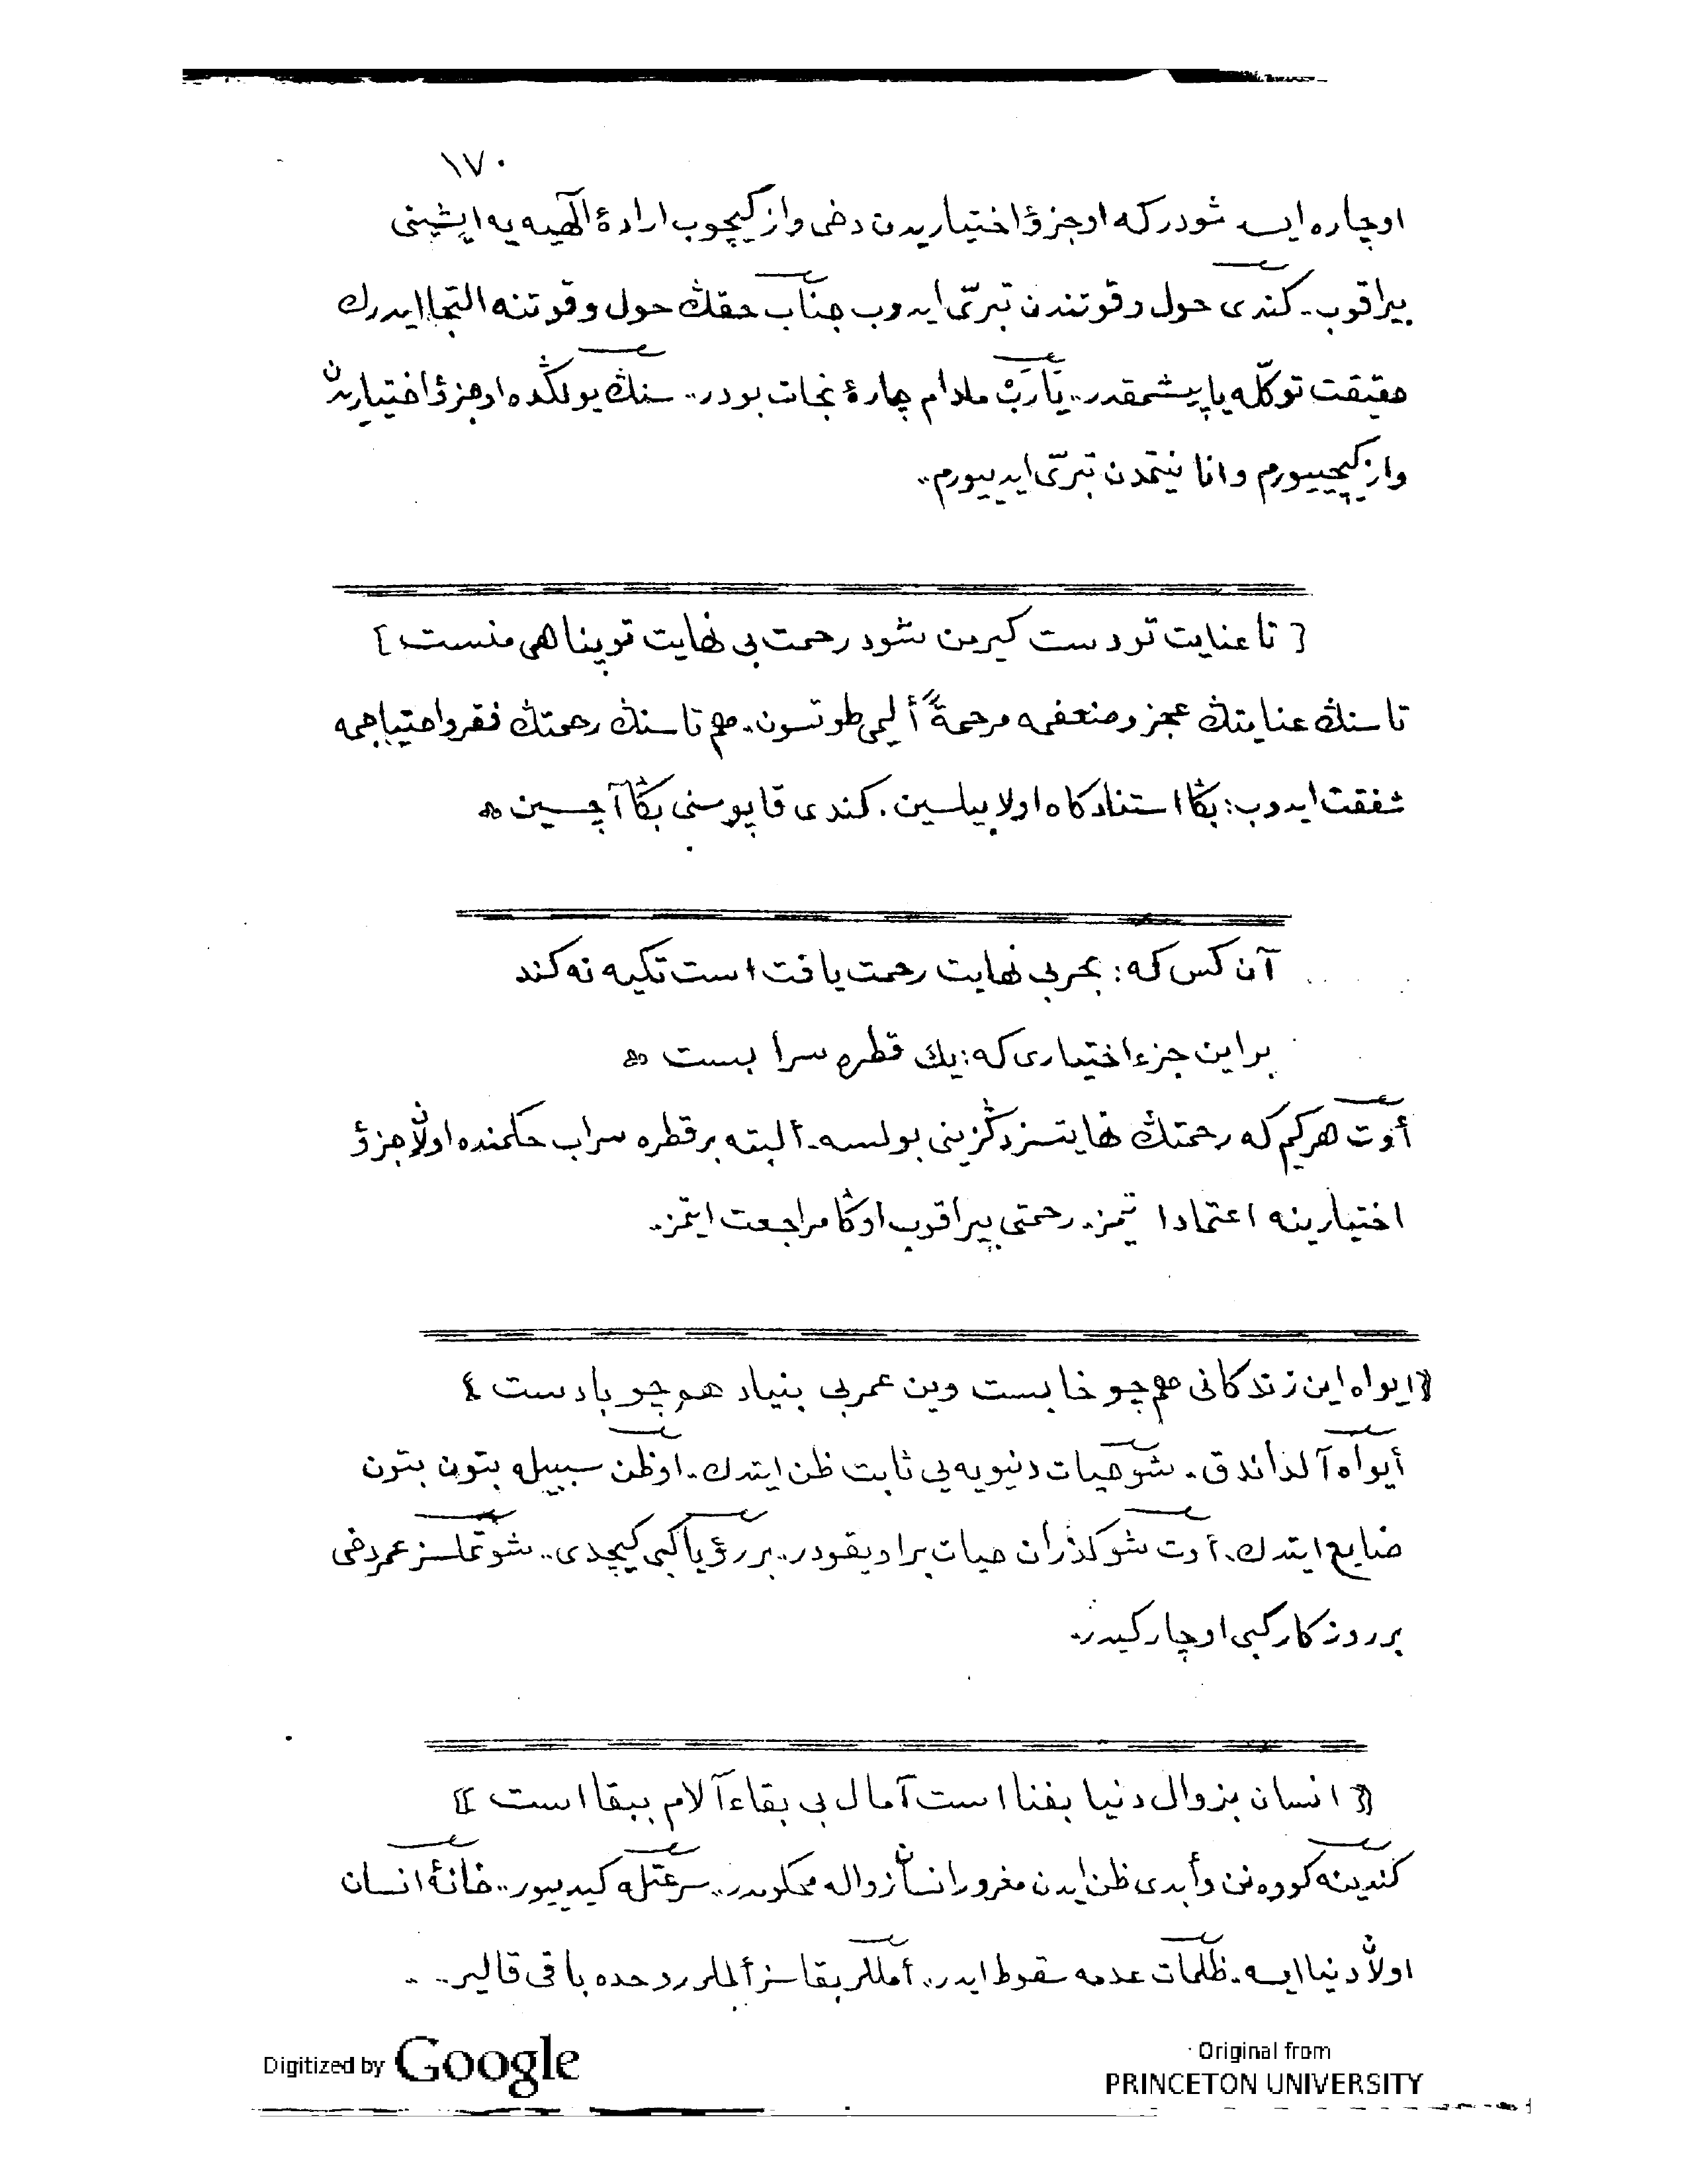 ١٧٠
اوچاره ایسه شودرکه اوجزؤ اختیاریدن دخی واز کیچوب ارادهٔ الٓهیه یه ایشینی
بیراقوب. کندی حول وقوتندن تبرّی ایدوب جناب حقڭ حول وقوتنه التجا ایدرك
حقیقت توکّله یاپیشمقدر.. یَارَبْ مادام چارهٔ نجات بودر.. سنڭ یولڭده اوجزؤ اختیاریدن
واز کیچییورم وانا نیتمدن تبرّی ایدییورم..
[ تا عنایت تو دست کیرمن شود رحمت بی نهایت تو پناهی منست ]
تا سنڭ عنایتڭ عجز وضعفمه مرحمةً ألیمی طوتسون. هم تا سنڭ رحمتڭ فقر واحتیاجمه
شفقت ایدوب: بڭا استنادکاه اولابیلسین. کندی قاپوسنی بڭا آچسین ❊
آن کس که: بحربی نهایت رحمت یافت است تکیه نه کند
براین جزء اختیاری که: یك قطره سرأ بست ❊
أوت هرکیم که رحمتڭ نهایتسز دڭزینی بولسه. ألبته برقطره سراب حکمنده اولان جزؤ
اختیارینه اعتمادا یتمز. رحمتی بیراقوب اوڭا مراجعت ایتمز..
﴿ ایواه این زندکانی هم چو خابست وین عمربی بنیاد هم چو بادست ﴾
أیواه آلداندق. شو حیات دنیویه یی ثابت ظن ایتدك. اوظن سببیله بتون بتون
ضایع ایتدك. أوت شو کذران حیات براویقودر.. بررؤیا کبی کیچدی.. شو تملسز عمردخی
برروزکار کبی اوچار کیدر..
﴿ انسان بزوال دنیا بفنا است آمال بی بقاء آلام ببقا است ﴾
کندینه کووه نن وأبدی ظن ایدن مغرور انسان زواله محکومدر.. سرعتله کیدییور.. خانهٔ انسان
اولان دنیا ایسه. ظلمات عدمه سقوط ایدر.. أمللر بقاسز ألملر روحده باقی قالیر..
Digitized by Google
Original from
PRINCETON UNIVERSITY